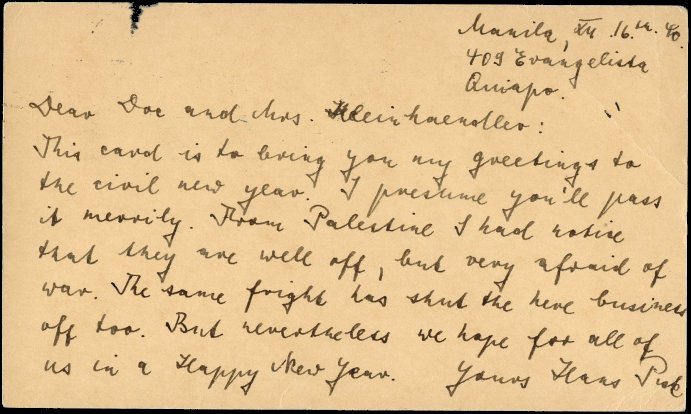 Manila, XII. 16.th. 40.
409 Evangelista
Quiapo.
Dear Doc and Mrs. Kleinhaendler:
This card is to bring you my greetings to
the civil new year. I presume you'll pass
it merrily. From Palestine I had notice
that they are well off, but very afraid of
war. The same fright has shut the here business
off too. But nevertheless we hope for all of
us in a Happy New Year. Yours Hans